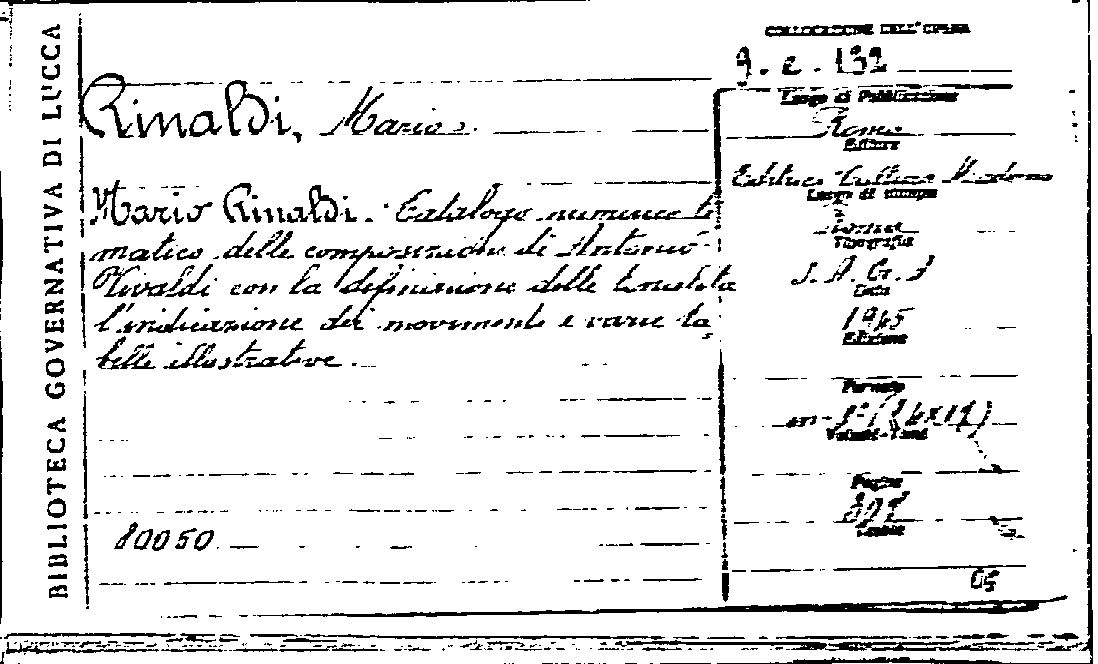 BIBLIOTECA GOVERNATIVA DI LUCCA
COLLOCAZIONE DELL'OPERA
9. e. 132
Rinaldi, Mario.
Mario Rinaldi. Catalogo numerico te
matico delle composizioni di Antonio
Vivaldi con la definizione delle tonalità
l'indicazione dei movimenti e varie ta
belle illustrative.
80050
Luogo di Pubblicazione
Roma
Editore
Editrice Cultura Moderna
Luogo di stampa
Roma
Tipografia
Data
1945
Edizione
Formato
Volumi - Tomi
Pagine